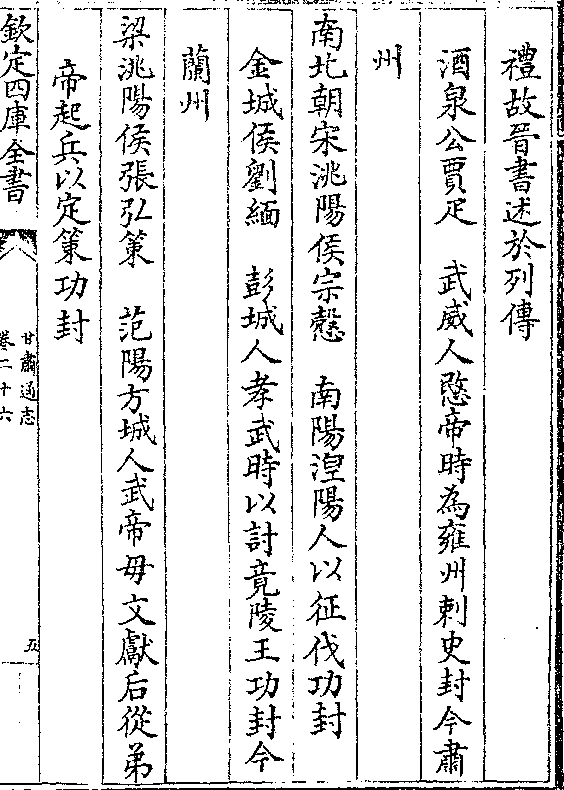 禮故晉書述於列傳
酒泉公賈疋　武威人愍帝時為雍州刺史封今肅
州
南北朝宋洮陽侯宗慤　南陽湼陽人以征伐功封
金城侯劉緬　彭城人孝武時以討竟陵王功封今
蘭州
梁洮陽侯張弘策　范陽方城人武帝母文獻后從弟
帝起兵以定策功封
欽定四庫全書
甘肅通志
卷二十六
五